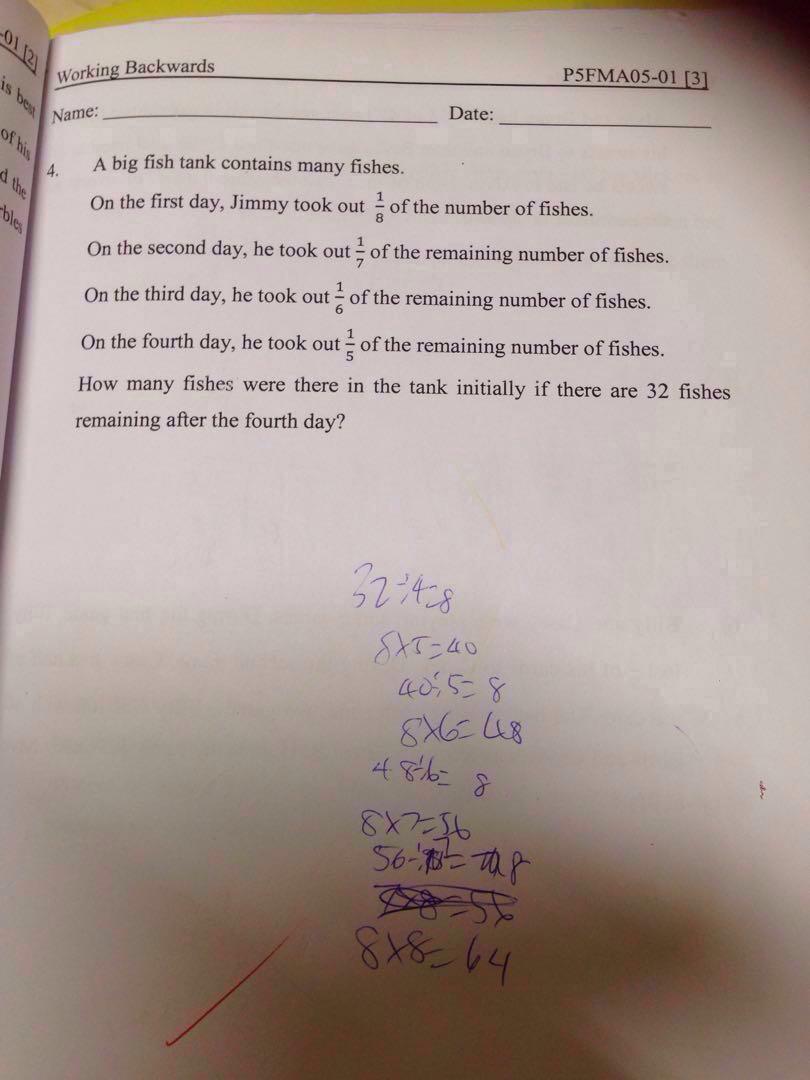 -01 [2]
is best
of his
d the
bles
Working Backwards P5FMA05-01 [3]
Name: Date:
4. A big fish tank contains many fishes.
On the first day, Jimmy took out 1/8 of the number of fishes.
On the second day, he took out 1/7 of the remaining number of fishes.
On the third day, he took out 1/6 of the remaining number of fishes.
On the fourth day, he took out 1/5 of the remaining number of fishes.
How many fishes were there in the tank initially if there are 32 fishes
remaining after the fourth day?
32÷4=8
8×5=40
40÷5=8
8×6=48
48÷6=8
8×7=56
56÷7=8
8×8=64